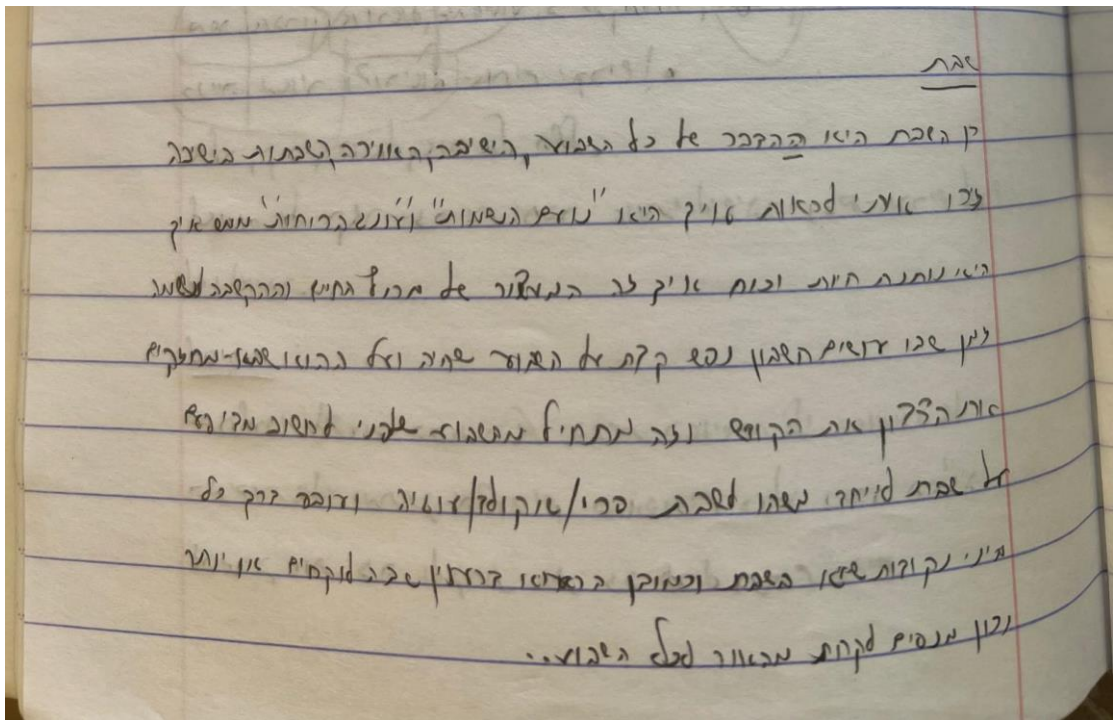 שבת
כן השבת היא ההדבר של כל השבוע, הישיבה, האווירה השבתות בישיבה
אותי לראות איך היא "נועם הנשמות" ו"עונג הרוחות" ממש איך
היא נותנת חיות וכוח איך זה המעצור של מרוץ החיים וההקשבה לנשמה
זמן שבו עושים חשבון נפש קצת על השבוע שהיה ועל ההוא שבא-מחזקים
את הצביון את הקודש וזה מתחיל מהשבוע שלפני לחשוב מדי פעם
על שבת לייחד משהו לשבת פרי/שוקולד/עוגיה ועובר דרך כל
מיני נקודות השבת וכמובן שבה לוקחים או יותר
נכון מנסים לקחת מהאור לכל השבוע..